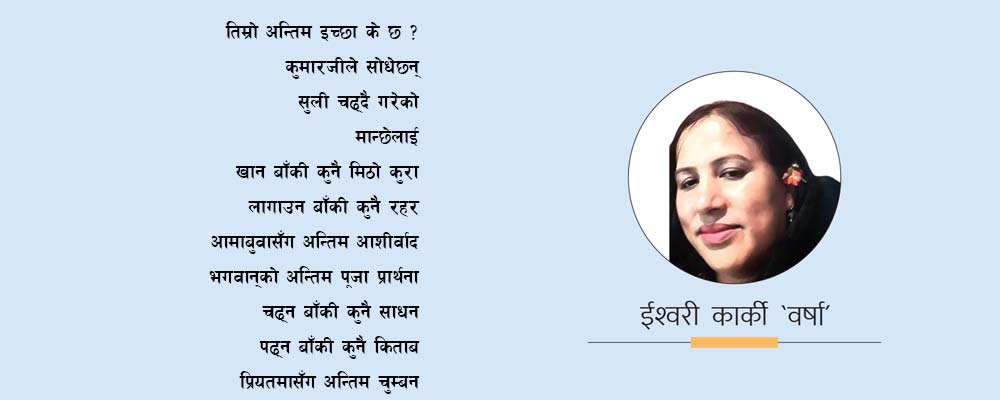 तिम्रो अन्तिम इच्छा के छ ?
कुमारजीले सोधेछन्
सुली चढ्दै गरेको
मान्छेलाई
खान बाँकी कुनै मिठो कुरा
लागाउन बाँकी कुनै रहर
आमाबुवासँग अन्तिम आशीर्वाद
भगवान्को अन्तिम पूजा प्रार्थना
चढ्न बाँकी कुनै साधन
पढ्न बाँकी कुनै किताब
प्रियतमासँग अन्तिम चुम्बन
ईश्वरी कार्की ‘वर्षा’